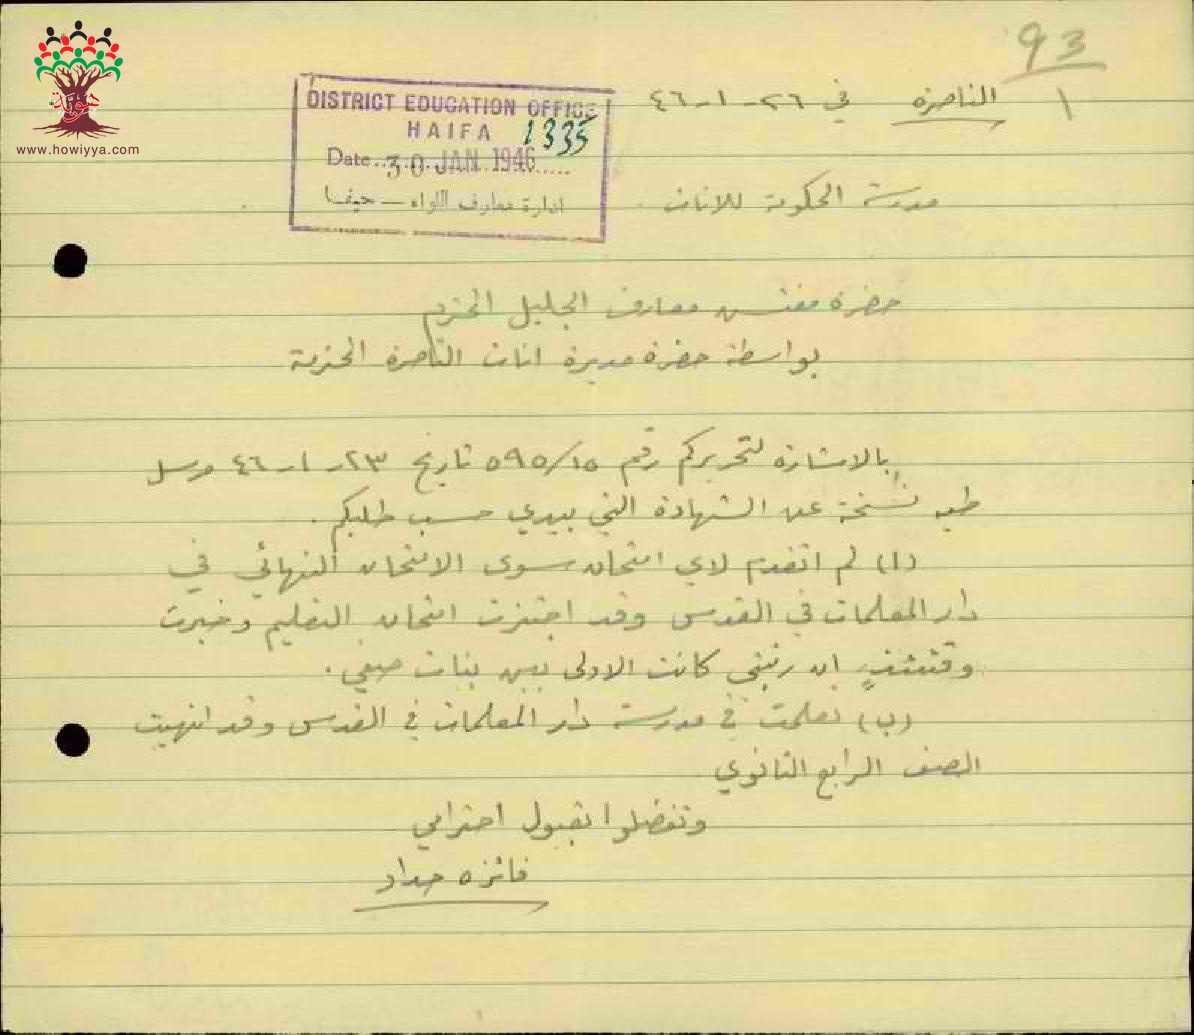 93
1
الناصرة في ٢٦-١-٤٦
هوية
www.howiyya.com
DISTRICT EDUCATION OFFICE
HAIFA 1335
Date 30 JAN 1946
ادارة معارف اللواء - حيفا
مدرسة الحكومة للاناث
حضرة مفتش معارف الجليل المحترم
بواسطة حضرة مديرة اناث الناصرة المحترمة
بالاشارة لتحريركم رقم ٥٩٥/١٥ تاريخ ٢٣-١-٤٦ مرسل
طيه نسخة عن الشهادة التي بيدي حسب طلبكم.
(ا) لم اتقدم لاي امتحان سوى الامتحان النهائي في
دار المعلمات في القدس وقد اجتزت امتحان التعليم وخبرت
وقتئذٍ ان رتبتي كانت الاولى بين بنات صفي.
(ب) تعلمت في مدرسة دار المعلمات في القدس وقد انهيت
الصف الرابع الثانوي
وتفضلوا بقبول احترامي
فائزه حداد